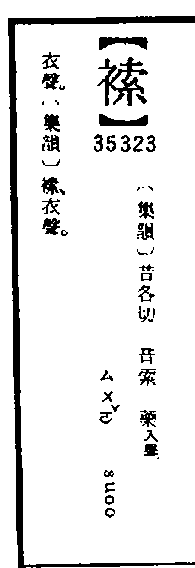 【】
35323
〔集韻〕昔各切 音索 藥入聲
ㄙㄨㄛˇ suoo
衣聲。〔集韻〕、衣聲。